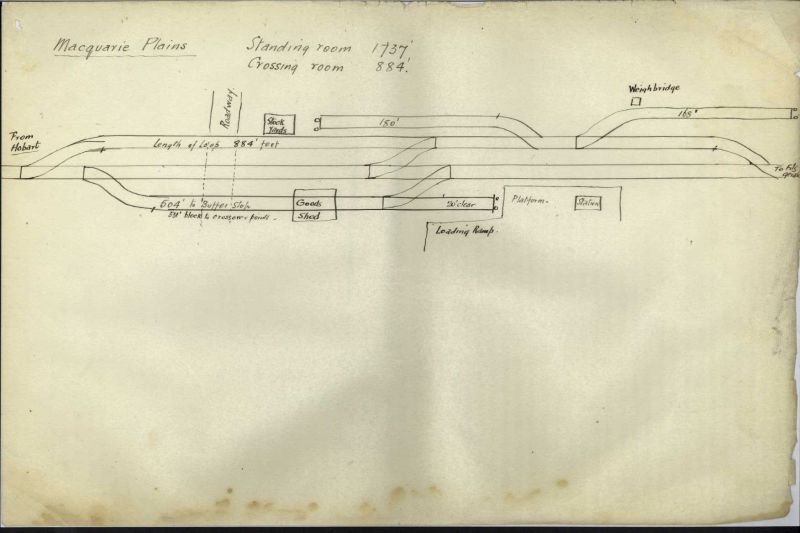 Macquarie Plains
Standing room 1737'
Crossing room 884'.
Roadway
Stock
Yards
Weighbridge
150'
165'
From
Hobart
Length of Loop 884' feet
To
604' to Buffer Stop
Goods
Shed
clear
Platform.
Station
block to crossover points
Loading Ramp.